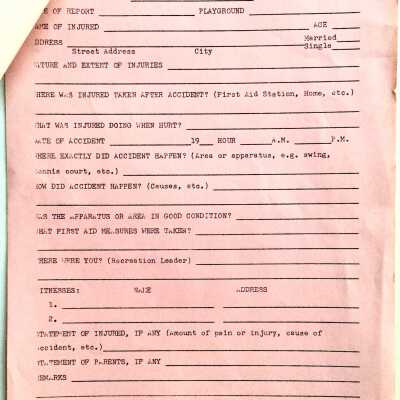 TE OF REPORT PLAYGROUND
ME OF INJURED AGE
DDRESS Married
Single
Street Address City
ATURE AND EXTENT OF INJURIES
HERE WAS INJURED TAKEN AFTER ACCIDENT? (First Aid Station, Home, etc.)
HAT WAS INJURED DOING WHEN HURT?
ATE OF ACCIDENT 19 HOUR A.M. P.M.
HERE EXACTLY DID ACCIDENT HAPPEN? (Area or apparatus, e.g. swing,
ennis court, etc.)
OW DID ACCIDENT HAPPEN? (Causes, etc.)
AS THE APPARATUS OR AREA IN GOOD CONDITION?
HAT FIRST AID MEASURES WERE TAKEN?
HERE WERE YOU? (Recreation Leader)
ITNESSES: NAME ADDRESS
1.
2.
TATEMENT OF INJURED, IF ANY (Amount of pain or injury, cause of
ccident, etc.)
TATEMENT OF PARENTS, IF ANY
EMARKS